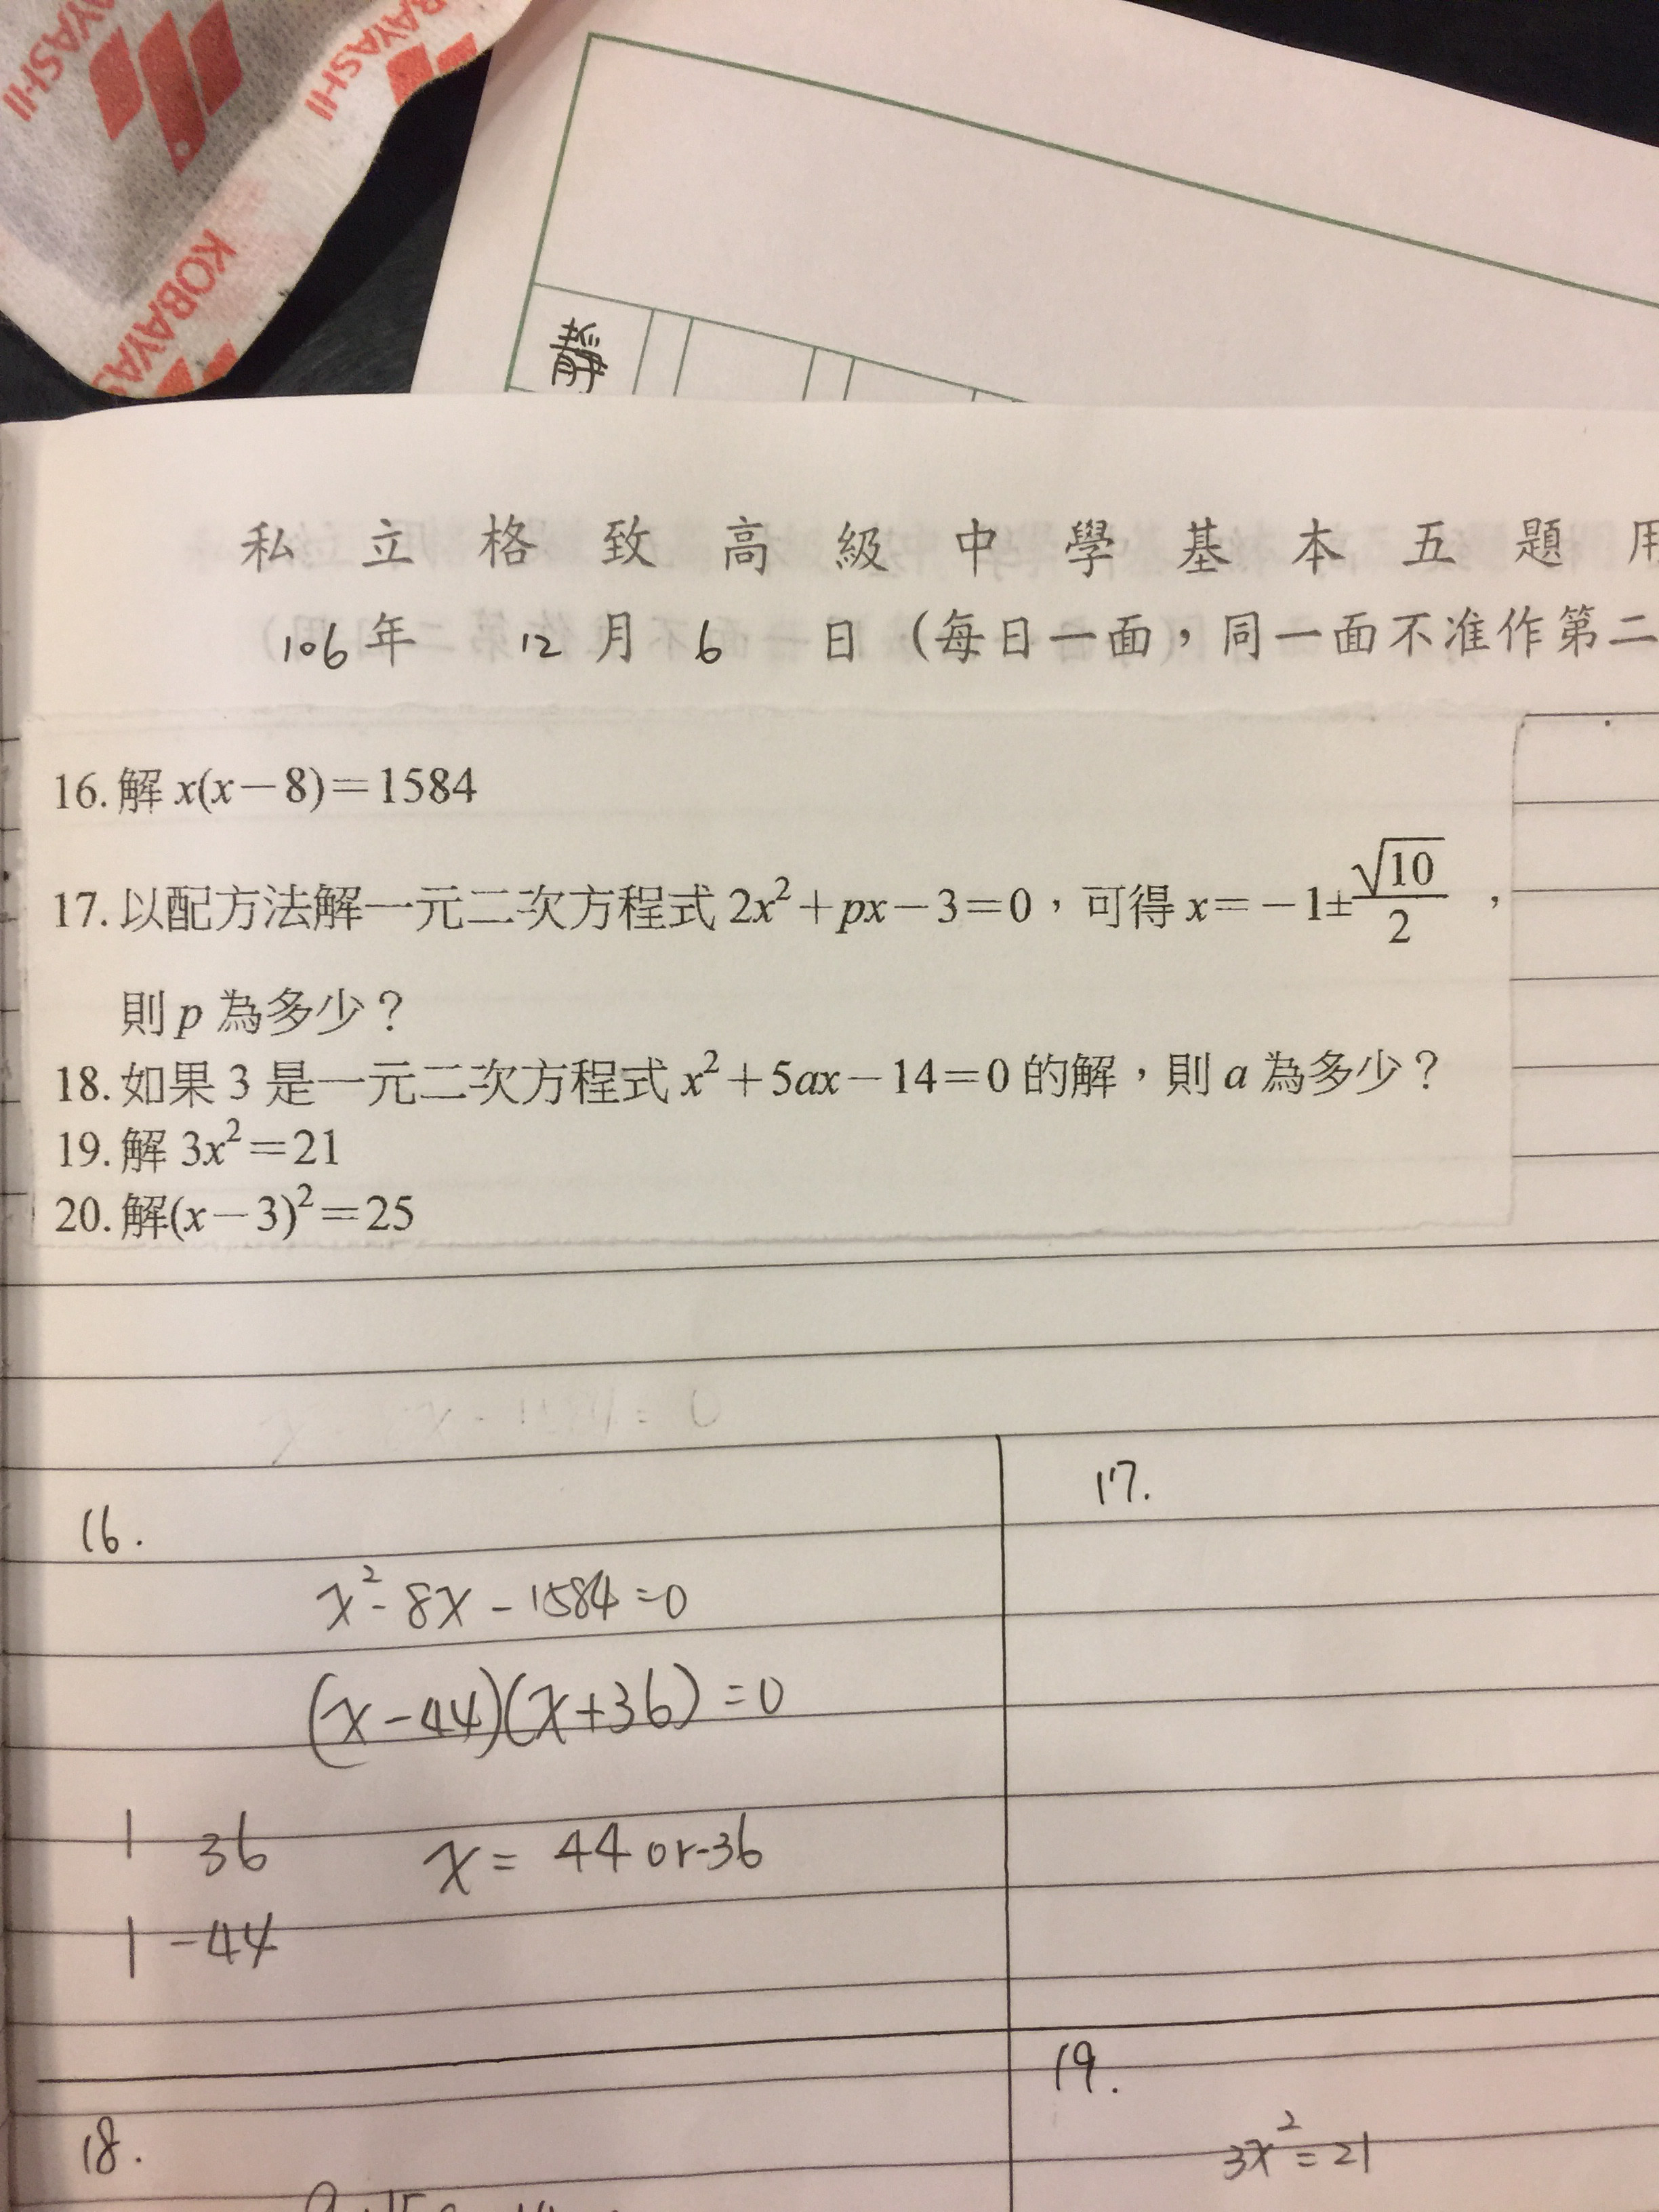 KOBAYASHI
靜
私立格致高級中學基本五題用
106年 12月 6 日 (每日一面，同一面不准作第二
16. 解 x(x－8)＝1584
17. 以配方法解一元二次方程式 2x²＋px－3＝0，可得 x＝－1±√10/2，
則 p 為多少？
18. 如果 3 是一元二次方程式 x²＋5ax－14＝0 的解，則 a 為多少？
19. 解 3x²＝21
20. 解(x－3)²＝25
16.
x²-8x-1584=0
(x-44)(x+36)=0
1 36
x= 44 or-36
1 -44
17.
18.
19.
3x²=21